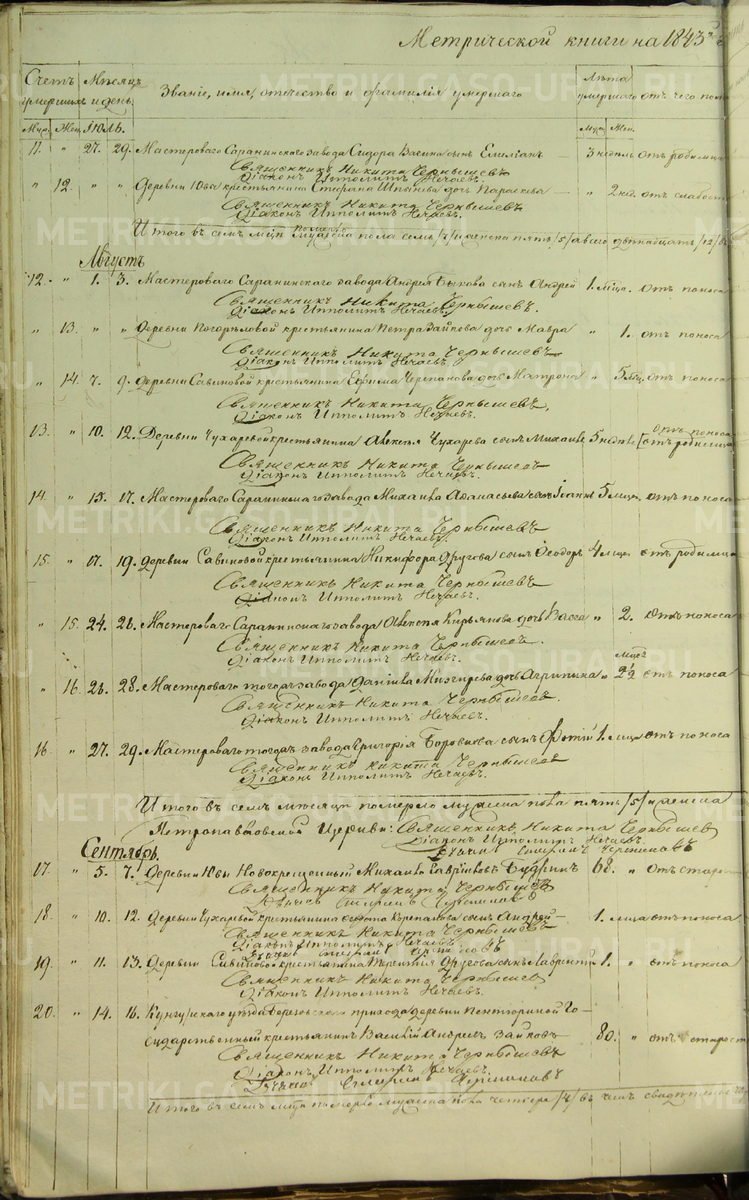 Метрической книги на 1843
Счетъ умершихъ Мѣсяцъ и день Званіе, имя, отечество и фамилія умершаго Лѣта умершаго отъ чего
Муж. Жен. Іюль. Муж. Жен.
11. " 27. 29. Мастероваго Саранинскаго завода Сидора Васина сынъ Емиліанъ 3 недѣль отъ родимца
Священникъ Никита Чернышевъ
Діаконъ Ипполитъ Нечаевъ.
" 12. " " Деревни Ювы крестьянина Стефана дочь Параскева " 2 нед. отъ слабости
Священникъ Никита Чернышевъ
Діаконъ Ипполитъ Нечаевъ.
Итого въ семъ мцѣ померло мужеска пола семь /7/ и женска пять /5/ а всего двѣнадцать /12/
Августъ
12. " 1. 3. Мастероваго Саранинскаго завода Андрея Быкова сынъ Андрей 1. мца. отъ поноса
Священникъ Никита Чернышевъ.
Діаконъ Ипполитъ Нечаевъ.
" 13. " " Деревни Погорѣловой крестьянина Петра Зайкова дочь Мавра " 1. отъ поноса
Священникъ Никита Чернышевъ
Діаконъ Ипполитъ Нечаевъ.
" 14. 7. 9. Деревни Савиновой крестьянина Ефима Черепанова дочь Матрона " 5 отъ поноса
Священникъ Никита Чернышевъ.
Діаконъ Ипполитъ Нечаевъ.
13. " 10. 12. Деревни Чухаревой крестьянина Алексѣя Чухарева сынъ Михаилъ 5 недѣль отъ родимца
отъ поноса
Священникъ Никита Чернышевъ
Діаконъ Ипполитъ Нечаевъ.
14. " 15. 17. Мастероваго Саранинскаго завода Михаила Аѳанасьева сынъ Іоаннъ 5 мцев отъ поноса
Священникъ Никита Чернышевъ
Діаконъ Ипполитъ Нечаевъ.
15. " 17. 19. Деревни Савиновой крестьянина Никифора Другова сынъ Ѳеодоръ 4 мцев отъ родимца
Священникъ Никита Чернышевъ
Діаконъ Ипполитъ Нечаевъ.
" 15. 24. 26. Мастероваго Саранинскаго завода Алексѣя Кирьянова дочь Васса " 2. отъ поноса
Священникъ Никита Чернышевъ.
Діаконъ Ипполитъ Нечаевъ.
" 16. 26. 28. Мастероваго тогожъ завода Даніила дочь Агрипина " 2½ отъ поноса
Священникъ Никита Чернышевъ
Діаконъ Ипполитъ Нечаевъ.
16. " 27. 29. Мастероваго тогожъ завода Григорія Боровкова сынъ Фотій 1. мца отъ поноса
Священникъ Никита Чернышевъ
Діаконъ Ипполитъ Нечаевъ.
Итого въ семъ мѣсяцѣ померло мужеска пола пять /5/ и женска
Петропавловской Церкви: Священникъ Никита Чернышев
Діаконъ Ипполитъ Нечаевъ.
Сентябрь.
17. " 5. 7. Деревни Ювы Новокрещенный Михаилъ Гавриловъ Будринъ 68. " отъ старо
Священникъ Никита Чернышев
18. " 10. 12. Деревни Чухаревой крестьянина сынъ Андрей 1. мца отъ поноса
Священникъ Никита Чернышевъ
Діаконъ Ипполитъ Нечаевъ
19. " 11. 13. Деревни Савиновой крестьянина Другова сынъ Лаврентій 1. " отъ поноса
Священникъ Никита Чернышев
Діаконъ Ипполитъ Нечаевъ.
20. " 14. 16. Кунгурскаго уѣзда Березовскаго прихода деревни Го-
сударственный крестьянинъ Василій Андреевъ Зайковъ 80. " отъ старост
Священникъ Никита Чернышевъ
Діаконъ Ипполитъ Нечаевъ.
Итого въ семъ мцѣ померло мужеска пола четыре /4/ въ чемъ
METRIKI.GASOURAL.RU